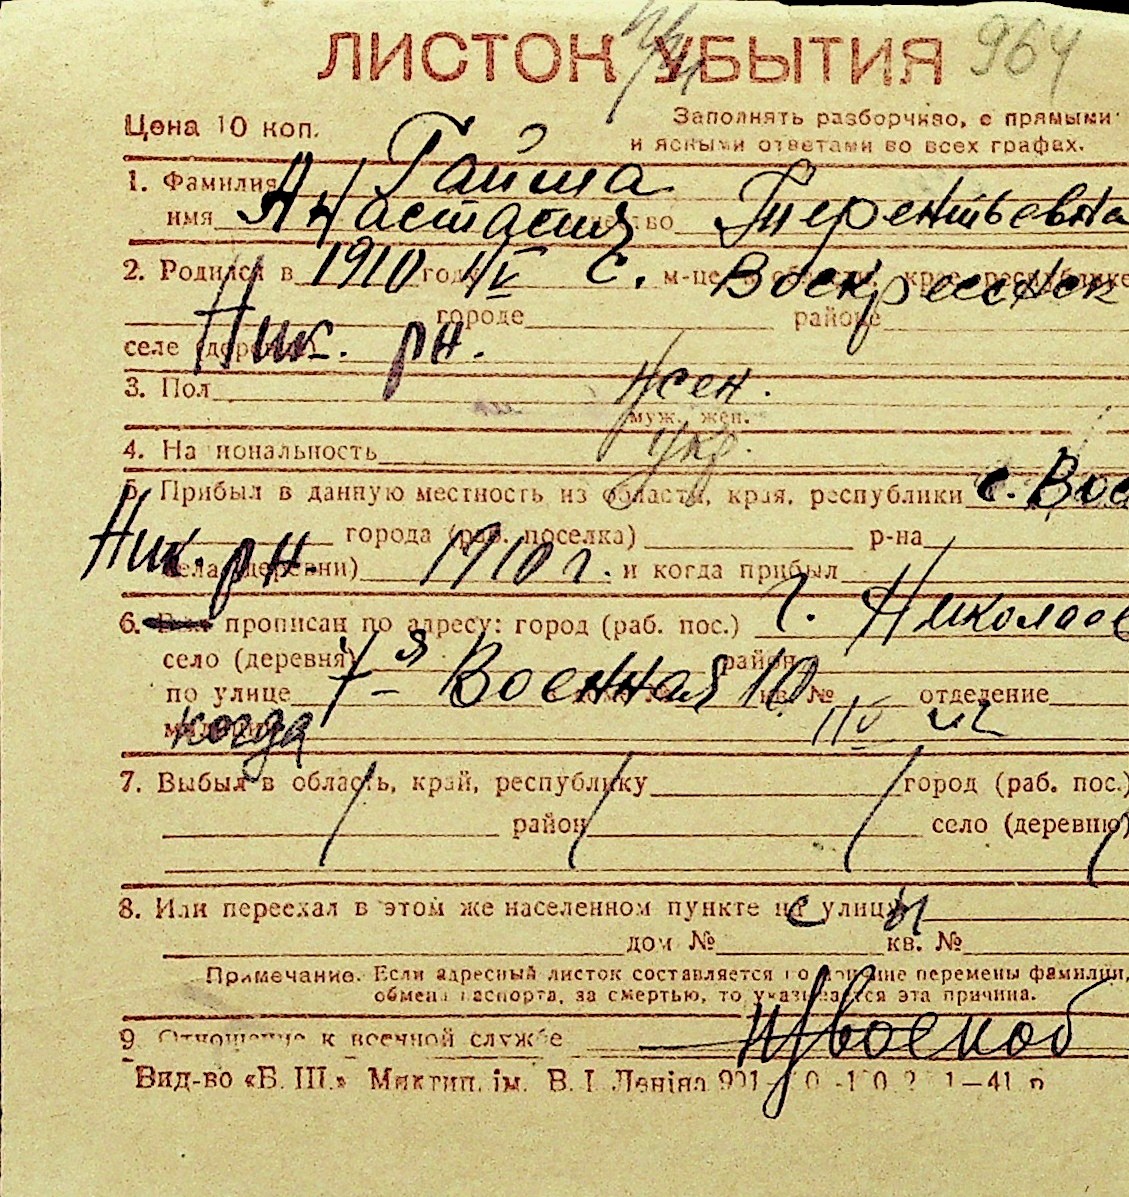 ЛИСТОК УБЫТИЯ 964
Цена 10 коп.
Заполнять разборчиво, с прямыми
и ясными ответами во всех графах.
1. Фамилия Гайша
имя Анастасия отчество Терентьевна
2. Родился в 1910 году IV с. м-це в области, крае, республике Воскресенск
городе районе
селе (деревне) Ник. рн.
3. Пол жен.
муж, жен.
4. Национальность укр.
5. Прибыл в данную местность из области, края, республики с. Вос
города (раб. поселка) р-на
Ник. рн. села (деревни) 1910 г. и когда прибыл
6. прописан по адресу: город (раб. пос.) г. Николаев
село (деревня) район
по улице 7-я Военная 10 дом № кв. № отделение
милиции когда
7. Выбыл в область, край, республику город (раб. пос.)
район село (деревню)
8. Или переехал в этом же населенном пункте на улицу
дом № кв. №
Примечание. Если адресный листок составляется по причине перемены фамилии,
обмена паспорта, за смертью, то указывается эта причина.
9. Отношение к военной службе н/военоб
Вид-во «Б. Ш.» Миктип. ім. В. І. Леніна